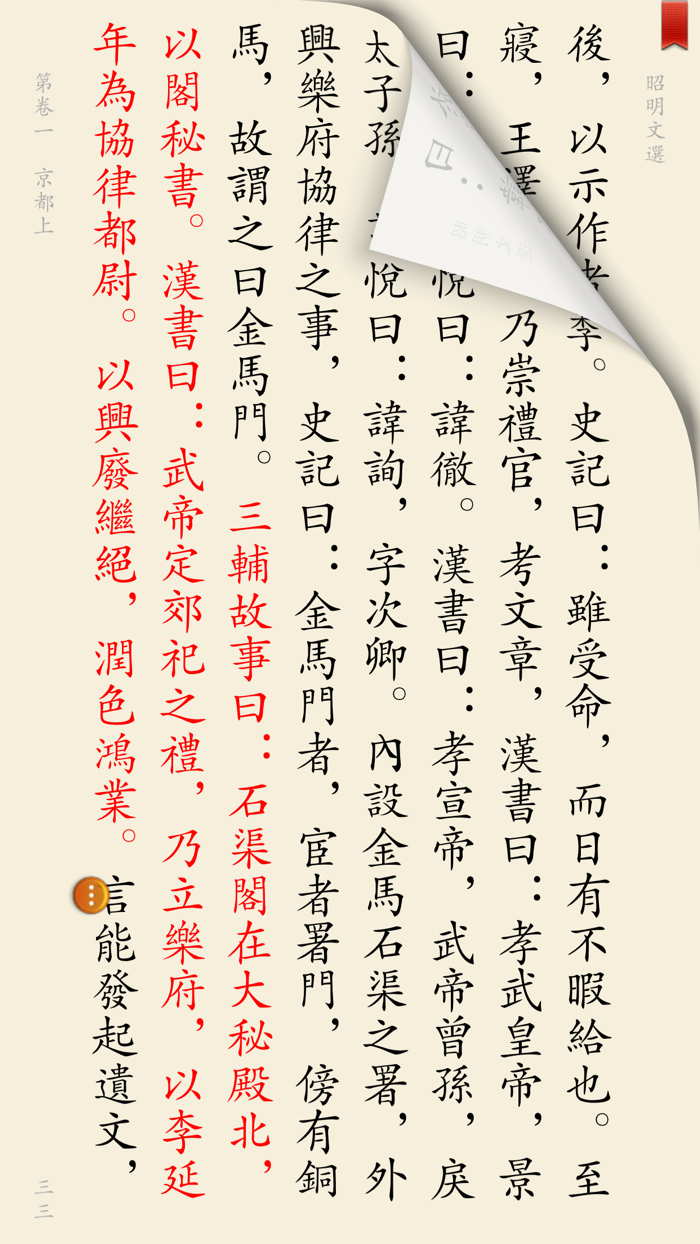 昭明文選
後，以示作。史記曰：雖受命，而日有不暇給也。至
寢，王澤乃崇禮官，考文章，漢書曰：孝武皇帝，景
曰：悅曰：諱徹。漢書曰：孝宣帝，武帝曾孫，戾
太子孫悅曰：諱詢，字次卿。內設金馬石渠之署，外
興樂府協律之事，史記曰：金馬門者，宦者署門，傍有銅
馬，故謂之曰金馬門。三輔故事曰：石渠閣在大秘殿北，
以閣秘書。漢書曰：武帝定郊祀之禮，乃立樂府，以李延
年為協律都尉。以興廢繼絕，潤色鴻業。言能發起遺文，
第卷一 京都上
三三